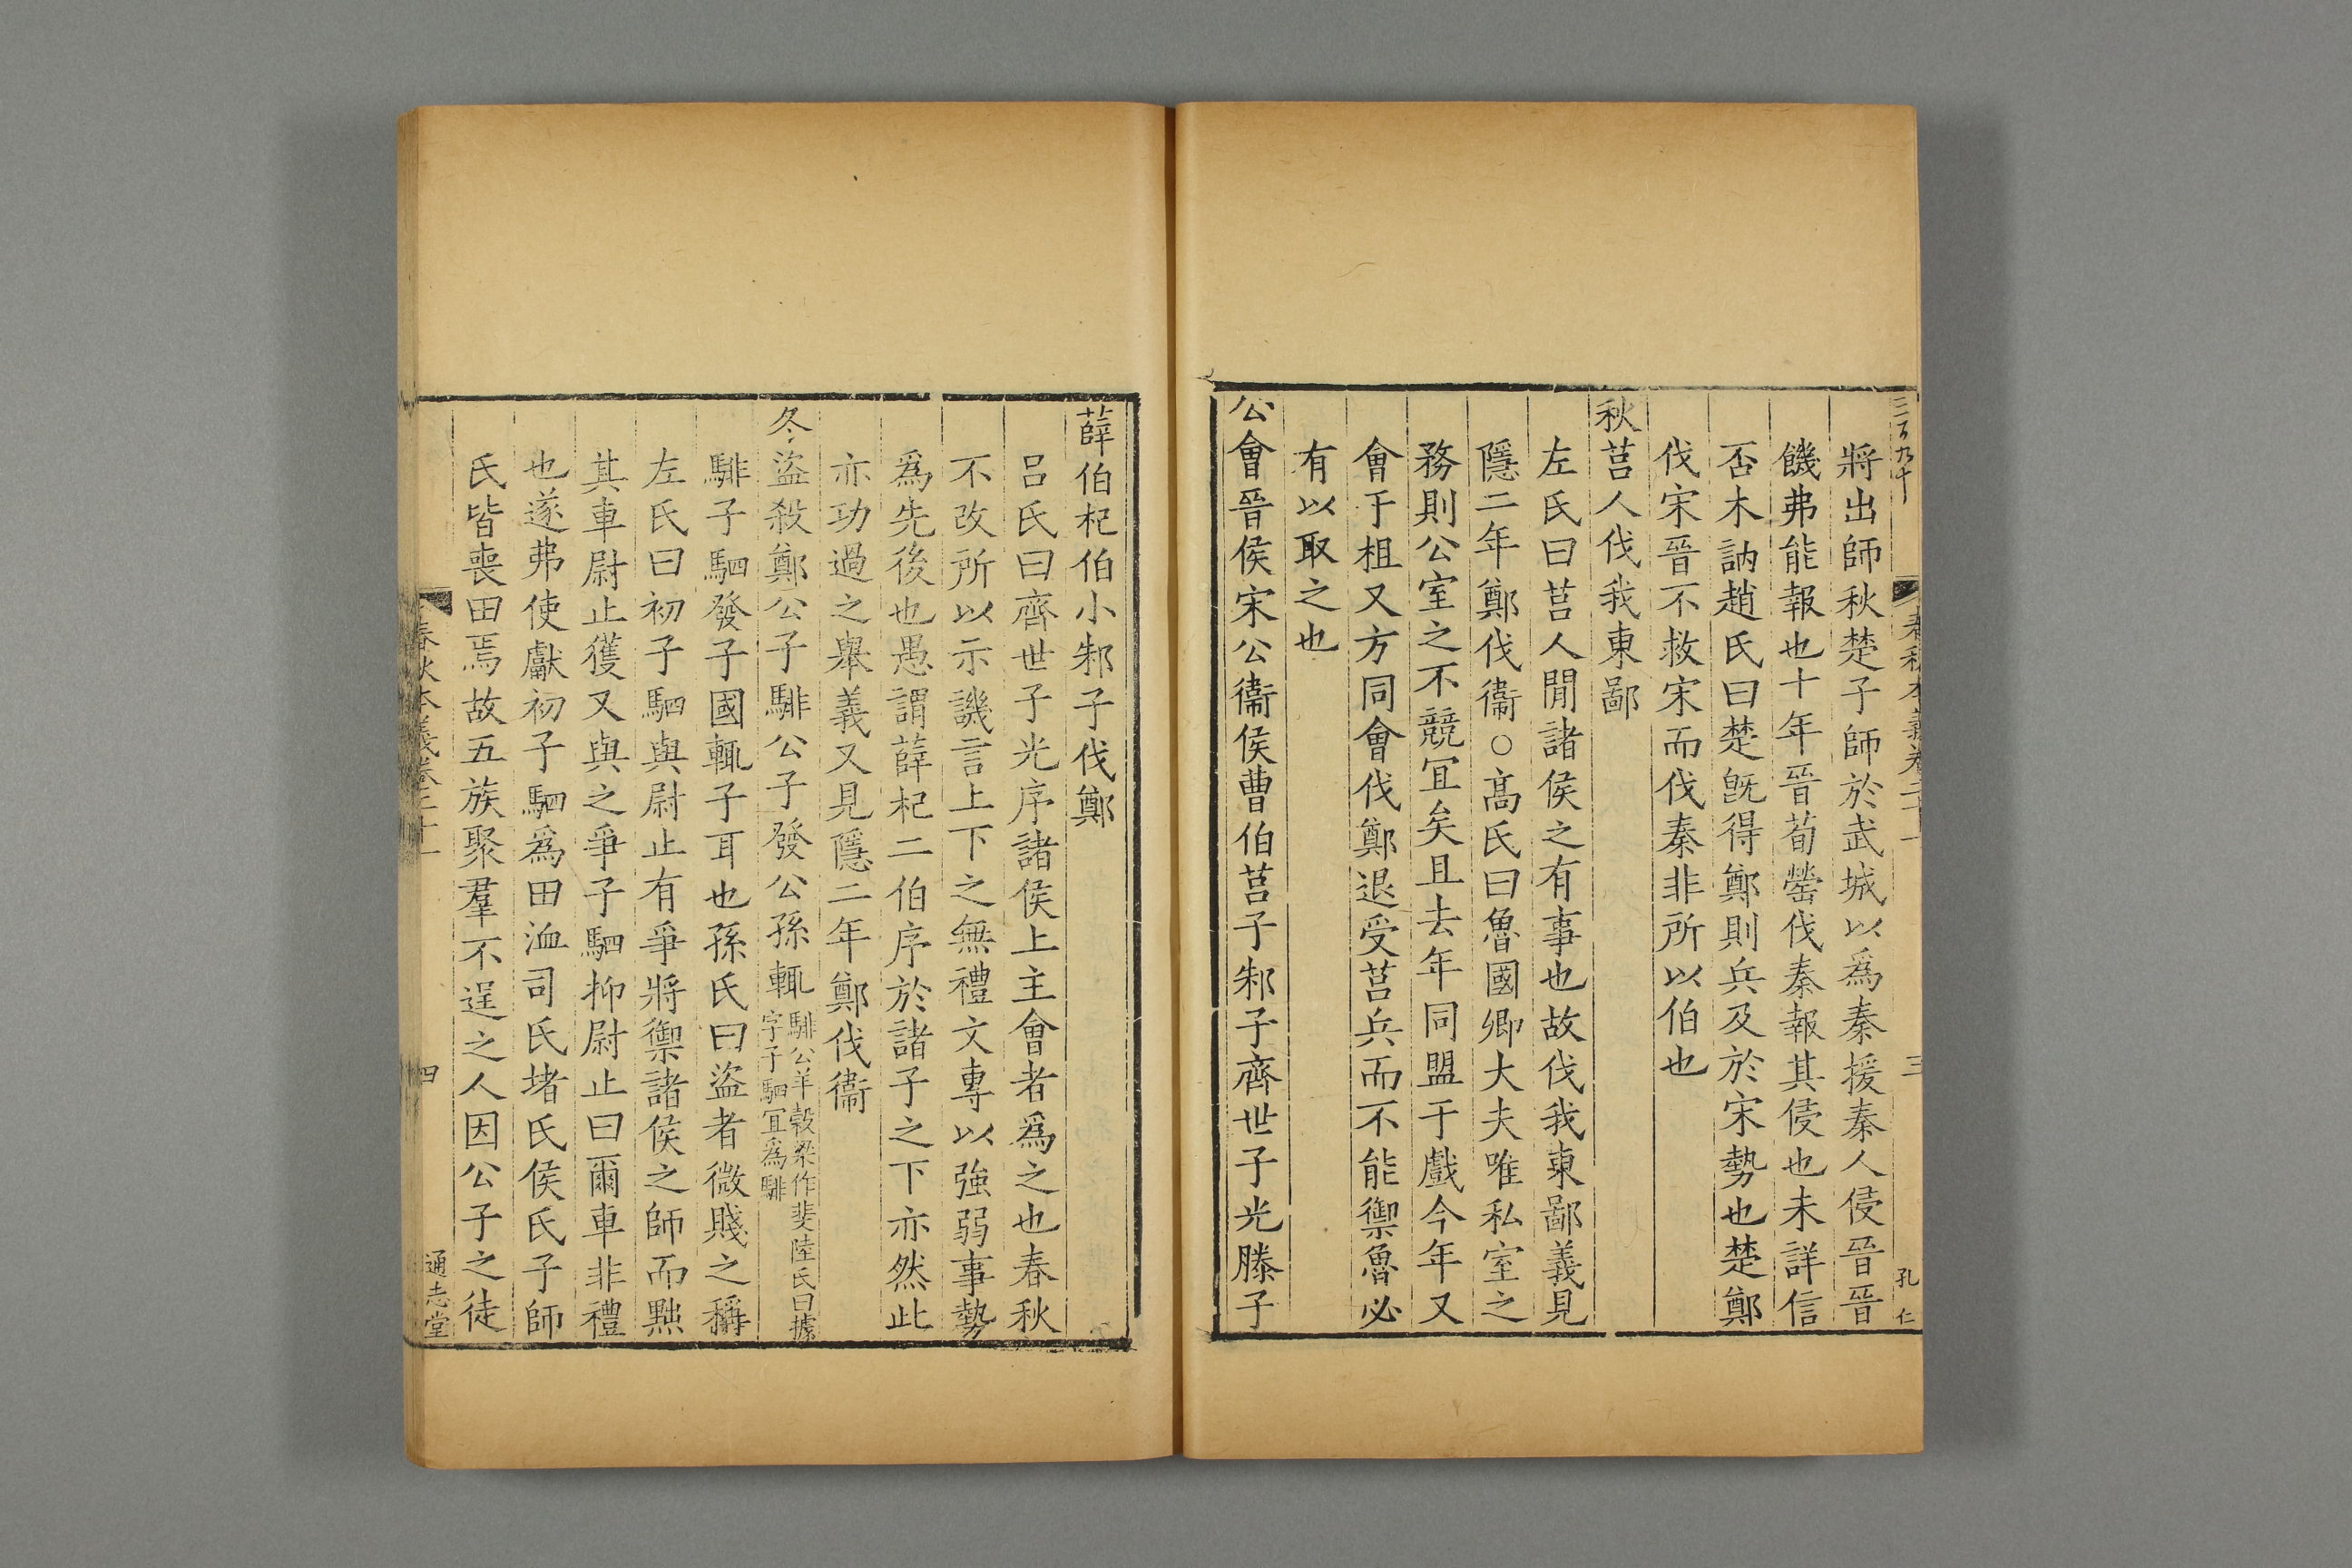 三百九十
春秋本義卷二十一
三
孔仁
將出師秋楚子師於武城以爲秦援秦人侵晉晉
饑弗能報也十年晉荀罃伐秦報其侵也未詳信
否木訥趙氏曰楚旣得鄭則兵及於宋勢也楚鄭
伐宋晉不救宋而伐秦非所以伯也
秋莒人伐我東鄙
左氏曰莒人閒諸侯之有事也故伐我東鄙義見
隱二年鄭伐衞○高氏曰魯國卿大夫唯私室之
務則公室之不競冝矣且去年同盟于戲今年又
會于柤又方同會伐鄭退受莒兵而不能禦魯必
有以取之也
公會晉侯宋公衞侯曹伯莒子邾子齊世子光滕子
薛伯杞伯小邾子伐鄭
呂氏曰齊世子光序諸侯上主會者爲之也春秋
不改所以示譏言上下之無禮文專以強弱事勢
爲先後也愚謂薛杞二伯序於諸子之下亦然此
亦功過之舉義又見隱二年鄭伐衞
冬盜殺鄭公子騑公子發公孫輒騑公羊穀梁作斐陸氏曰據
字子駟冝爲騑
騑子駟發子國輒子耳也孫氏曰盜者微賤之稱
左氏曰初子駟與尉止有爭將禦諸侯之師而黜
其車尉止獲又與之爭子駟抑尉止曰爾車非禮
也遂弗使獻初子駟爲田洫司氏堵氏侯氏子師
氏皆喪田焉故五族聚羣不逞之人因公子之徒
春秋本義卷二十一
四
通志堂